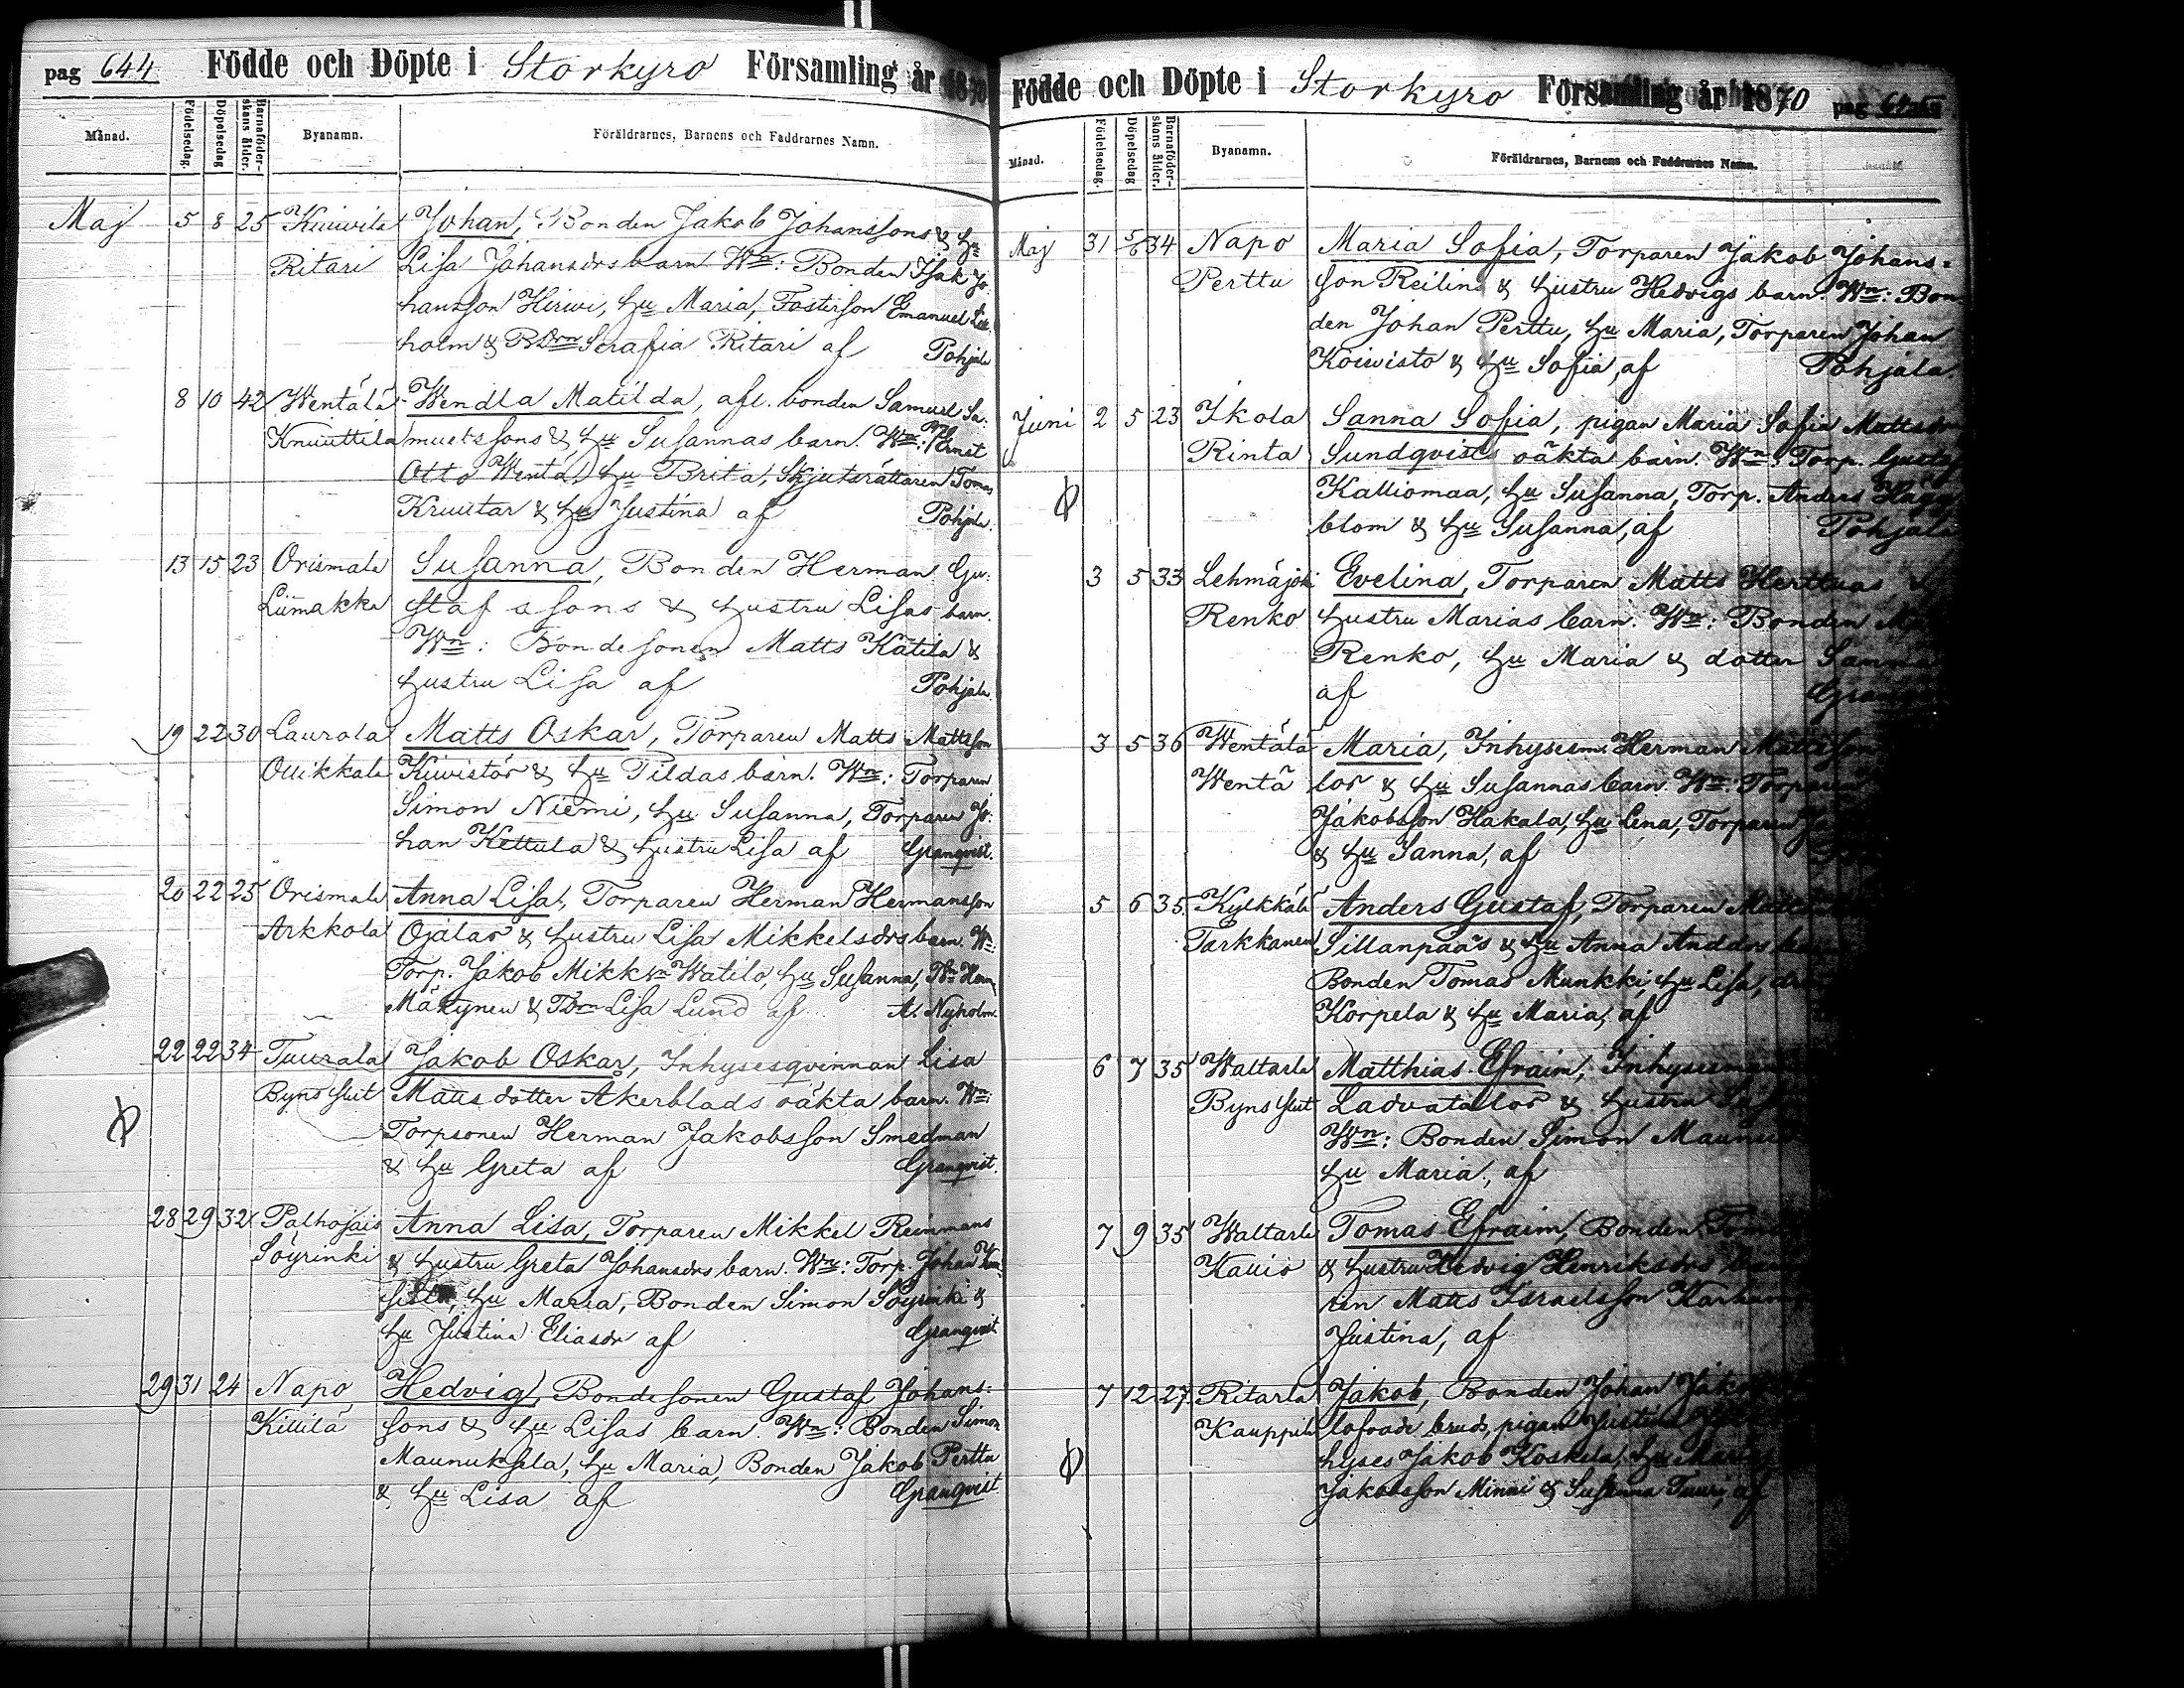 pag 644 Födde och Döpte i Storkyro Församling år 1870
Månad. Födelsedag. Döpelsedag Barnaföderskans ålder. Byanamn. Föräldrarnes, Barnens och Faddrarnes Namn.
Maj 5 8 25 Johan, Bonden Jakob Johanssons & Hu
Ritari Lisa Johansdrs barn. Wn: Bonden Isak Jo-
hansson Hirwi, Hu Maria, Fosterson Emanuel
holm & Bdrn Serafia Ritari af Pohjala
8 10 42 Wentälä Wendla Matilda, afl. bonden Samuel Sa-
Knuuttila muelssons & Hu Susannas barn. Wn: Ernst
Otto Wenta, Hu Brita, Skjutsrättaren Tomas
Kruutar & Hu Justina af Pohjala.
13 15 23 Orismala Susanna, Bonden Herman Gu-
Liimakka stafssons & Hustru Lisas barn.
Wn: Bondesonen Matts Katila &
Hustru Lisa af Pohjala
19 22 30 Laurola Matts Oskar, Torparen Matts Mattsson
Ollikkala Kiwistös & Hu Tildas barn. Wn: Torparen
Simon Niemi, Hu Susanna, Torparen Jo-
han Kettula & Hustru Lisa af Granqvist.
20 22 25 Orismala Anna Lisa, Torparen Herman Hermansson
Arkkola Ojalas & Hustru Lisa Mikkelsdrs barn. Wn:
Torp. Jakob Mikksn Watilo, Hu Susanna,
Mäkynen & Tdrn Lisa Lund af A. Nyholm.
22 22 34 Tuurala Jakob Oskar, Inhysesqvinnan Lisa
Byns slut Matts dotter Åkerblads oäkta barn. Wn:
Torpsonen Herman Jakobsson Smedman
& Hu Greta af Granqvist.
28 29 32 Palhojais Anna Lisa, Torparen Mikkel Reinmans
Söyrinki & Hustru Greta Johansdrs barn. Wn: Torp. Johan
Hu Maria, Bonden Simon Söyrinki &
Hu Justina Eliasdr af Granqvist
29 31 24 Napo Hedvig, Bondesonen Gustaf Johans-
Killilä sons & Hu Lisas barn. Wn: Bonden Simon
Maunuksela, Hu Maria, Bonden Jakob Perttu
& Hu Lisa af Granqvist
Födde och Döpte i Storkyro Församling år 1870 pag
Månad. Födelsedag. Döpelsedag Barnaföderskans ålder. Byanamn. Föräldrarnes, Barnens och Faddrarnes Namn.
Maj 31 5/6 34 Napo Maria Sofia, Torparen Jakob Johans-
Perttu son Reilin & Hustru Hedvigs barn. Wn: Bon-
den Johan Perttu, Hu Maria, Torparen Johan
Koiwisto & Hu Sofia, af Pohjala.
Juni 2 5 23 Ikola Sanna Sofia, pigan Maria Sofia Mattsdr
Rinta Sundqvists oäkta barn. Wn: Torp. Gustaf
Kalliomaa, Hu Susanna, Torp. Anders Hägg-
blom & Hu Susanna, af Pohjala
3 5 33 Lehmäjoki Evelina, Torparen Matts Herttuas &
Renko Hustru Marias barn. Wn: Bonden
Renko, Hu Maria & dotter Sanna
af
3 5 36 Wentälä Maria, Inhysesm. Herman Mattsson
Wentä los & Hu Susannas barn. Wn: Torparen
Jakobsson Hakala, Hu Lena, Torparen
& Hu Sanna, af
5 6 35 Kylkkälä Anders Gustaf, Torparen Matts
Tarkkanen Sillanpääs & Hu Anna Anddrs
Bonden Tomas Munkki, Hu Lisa,
Korpela & Hu Maria, af
6 7 35 Waltarla Matthias Efraim, Inhysesman
Byns slut & Hustru
Wn: Bonden Simon
Hu Maria, af
7 9 35 Waltarla Tomas Efraim, Bonden
Kauio & Hustru Hedvig Henriksdrs
ren Matts Israelsson
Justina, af
7 12 27 Ritarla Jakob, Bonden Johan
Kauppila lofvade brud, pigan Justina
hyses Jakob Koskela, Hu
Jakobsson Minni & Susanna Tuuri, af